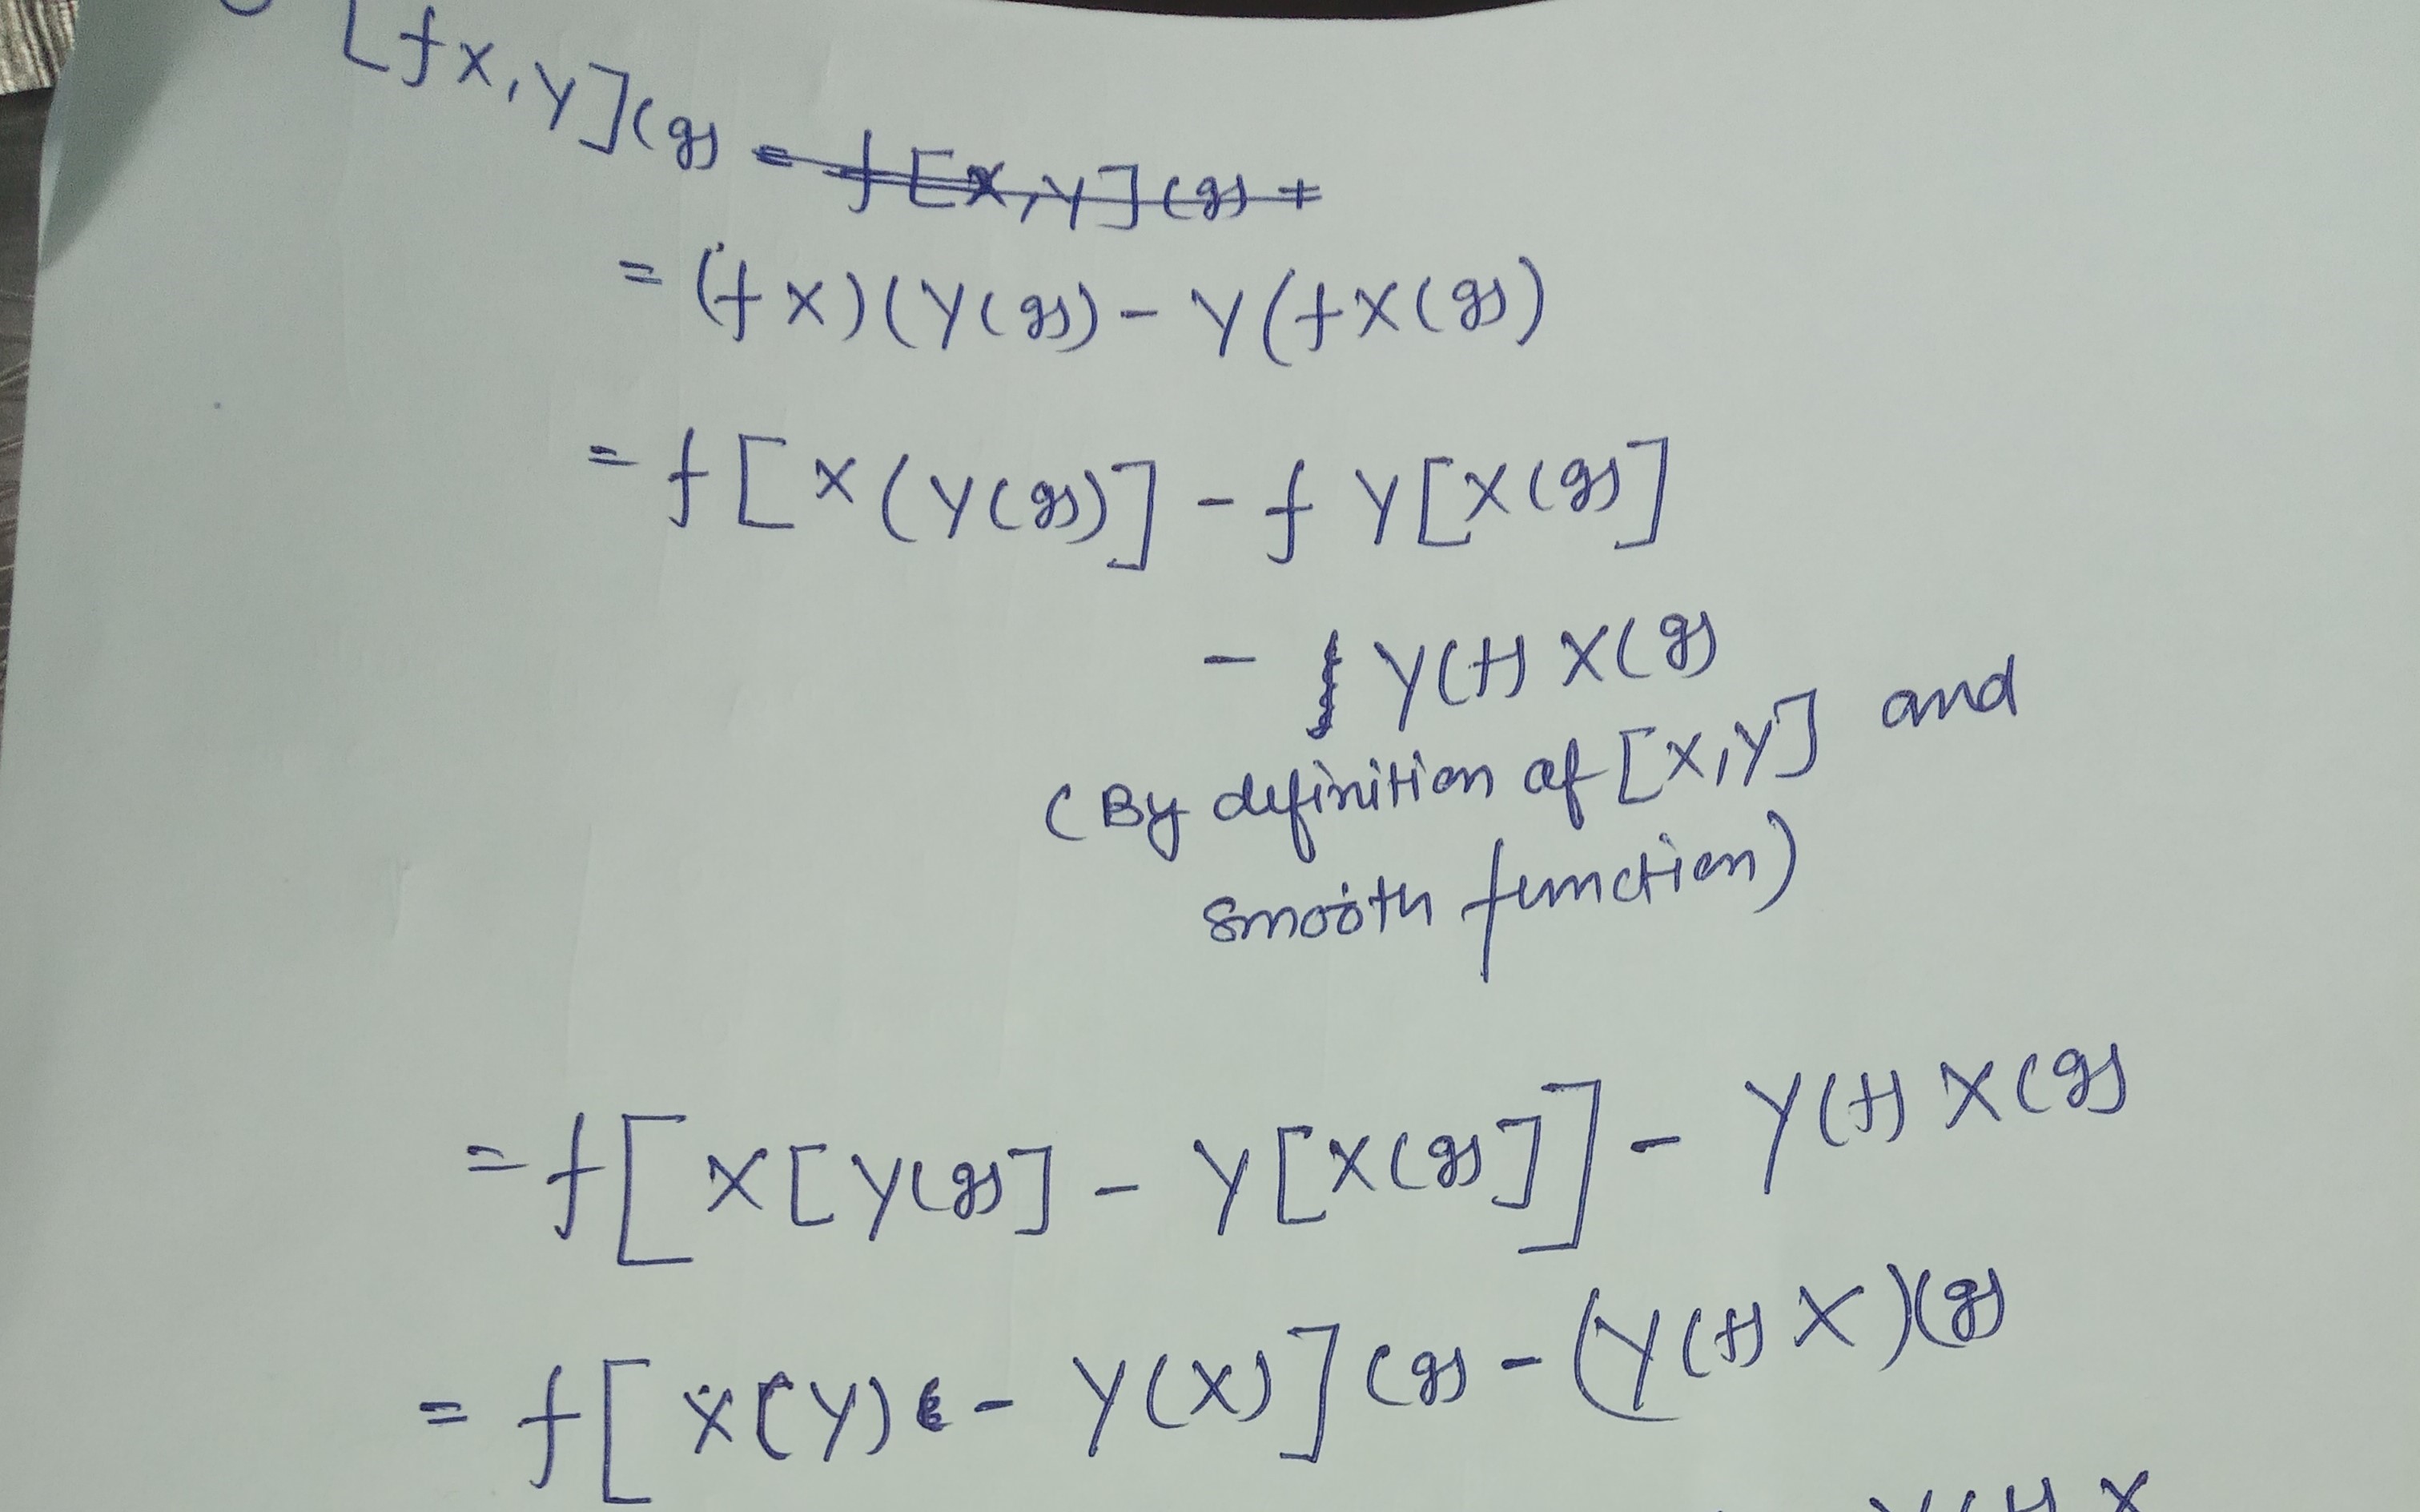 [fx,y](g) = f[x,y](g) +
= (fx)(y(g)) - y(fx(g))
= f[x(y(g))] - f y[x(g)]
- y(f) x(g)
(By definition of [x,y] and
smooth function)
= f[x[y(g)] - y[x(g)]] - y(f) x(g)
= f[x(y) - y(x)](g) - (y(f) x)(g)